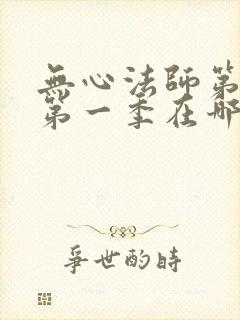 無心法師第
第一季在哪
爭世酌時